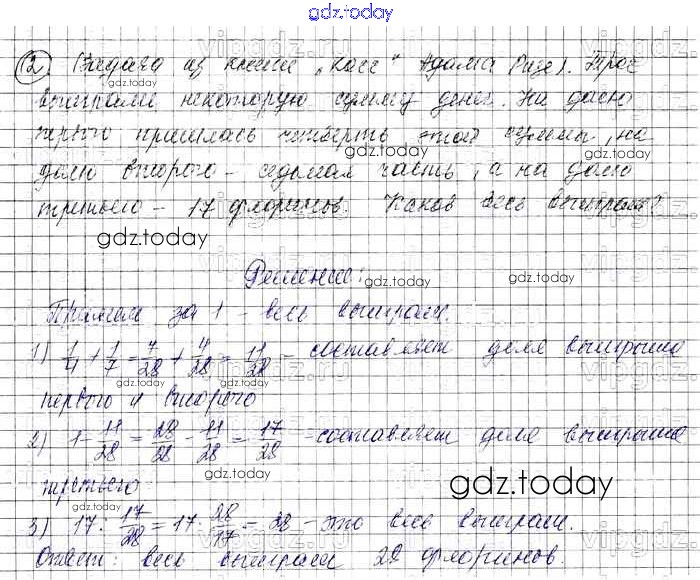 gdz.today
2) (Задача из книги „Косс“ Адама Ризе). Трое
выиграли некоторую сумму денег. На долю
первого пришлась четверть этой суммы, на
долю второго - седьмая часть, а на долю
третьего - 17 флоринов. Каков весь выигрыш?
Решение:
Примем за 1 - весь выигрыш.
1) 1/4 + 1/7 = 7/28 + 4/28 = 11/28 - составляет доля выигрыша
первого и второго
2) 1 - 11/28 = 28/28 - 11/28 = 17/28 - составляет доля выигрыша
третьего
3) 17 : 17/28 = 17 · 28/17 = 28 - это весь выигрыш.
Ответ: весь выигрыш 28 флоринов.
gdz.today
gdz.today
gdz.today
gdz.today
gdz.today
gdz.today
gdz.today
gdz.today
gdz.today
vipgdz.ru